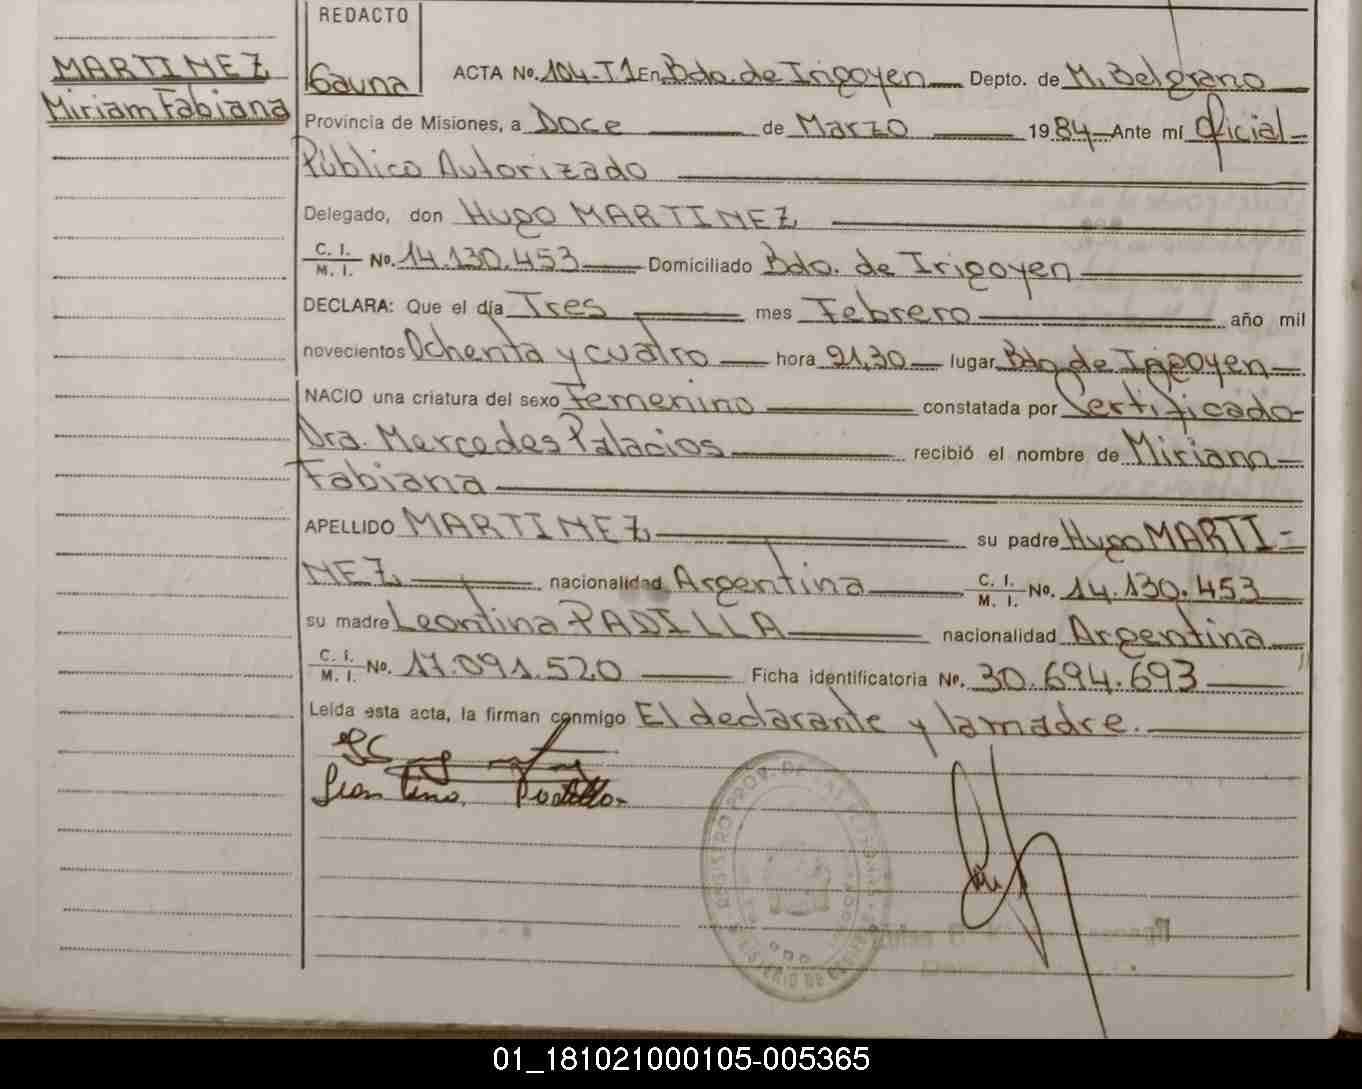 MARTINEZ
Miriam Fabiana
REDACTO
Gauna
ACTA No. 104-T1 En Bdo. de Irigoyen Depto. de M. Belgrano
Provincia de Misiones, a Doce de Marzo 1984 Ante mí Oficial
Público Autorizado
Delegado, don Hugo MARTINEZ
C. I. / M. I. No. 14.130.453 Domiciliado Bdo. de Irigoyen
DECLARA: Que el día Tres mes Febrero año mil
novecientos Ochenta y cuatro hora 21,30 lugar Bdo de Irigoyen
NACIO una criatura del sexo Femenino constatada por Certificado
Dra. Mercedes Palacios recibió el nombre de Miriam
Fabiana
APELLIDO MARTINEZ su padre Hugo MARTI-
NEZ nacionalidad Argentina C. I. / M. I. No. 14.130.453
su madre Leontina PADILLA nacionalidad Argentina
C. I. / M. I. No. 17.091.520 Ficha identificatoria No. 30.694.693
Leída esta acta, la firman conmigo El declarante y la madre.
01_181021000105-005365